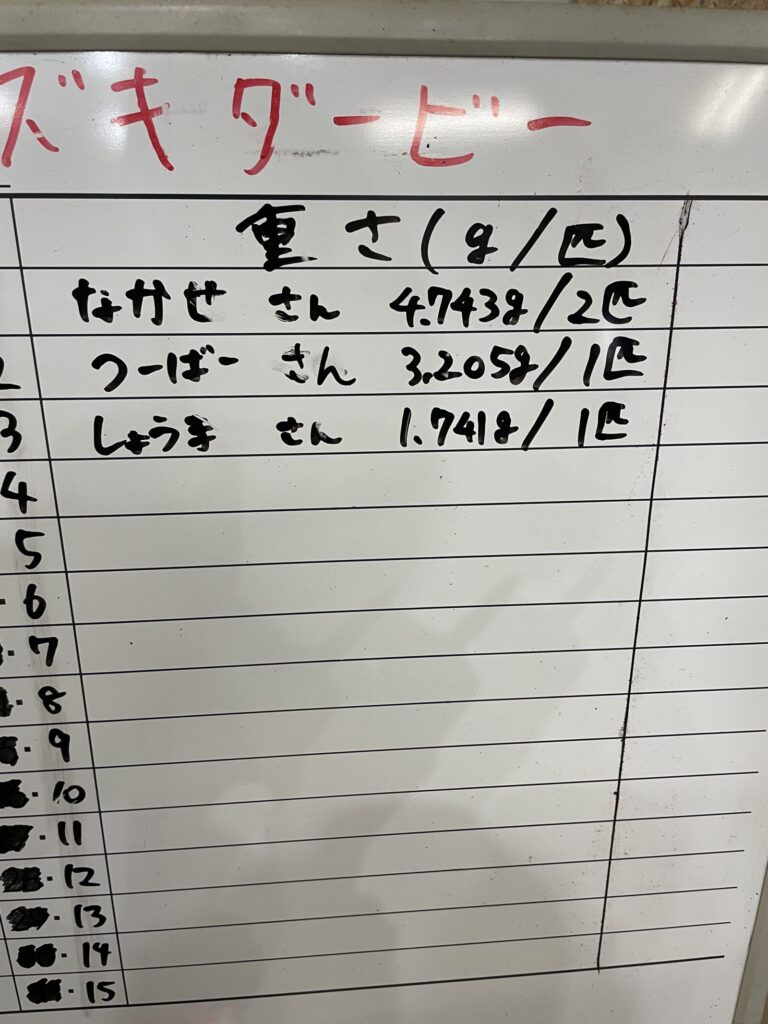 ズキダービー
重さ(g/匹)
なかせ さん 4.743g/2匹
2 つーばー さん 3.205g/1匹
3 しょうま さん 1.741g/1匹
4
5
・6
・7
・8
・9
・10
・11
・12
・13
・14
・15